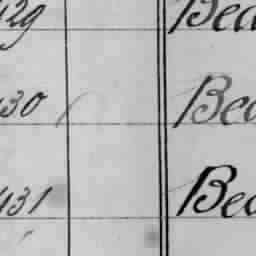 429 Bea
430 Bea
431 Bea